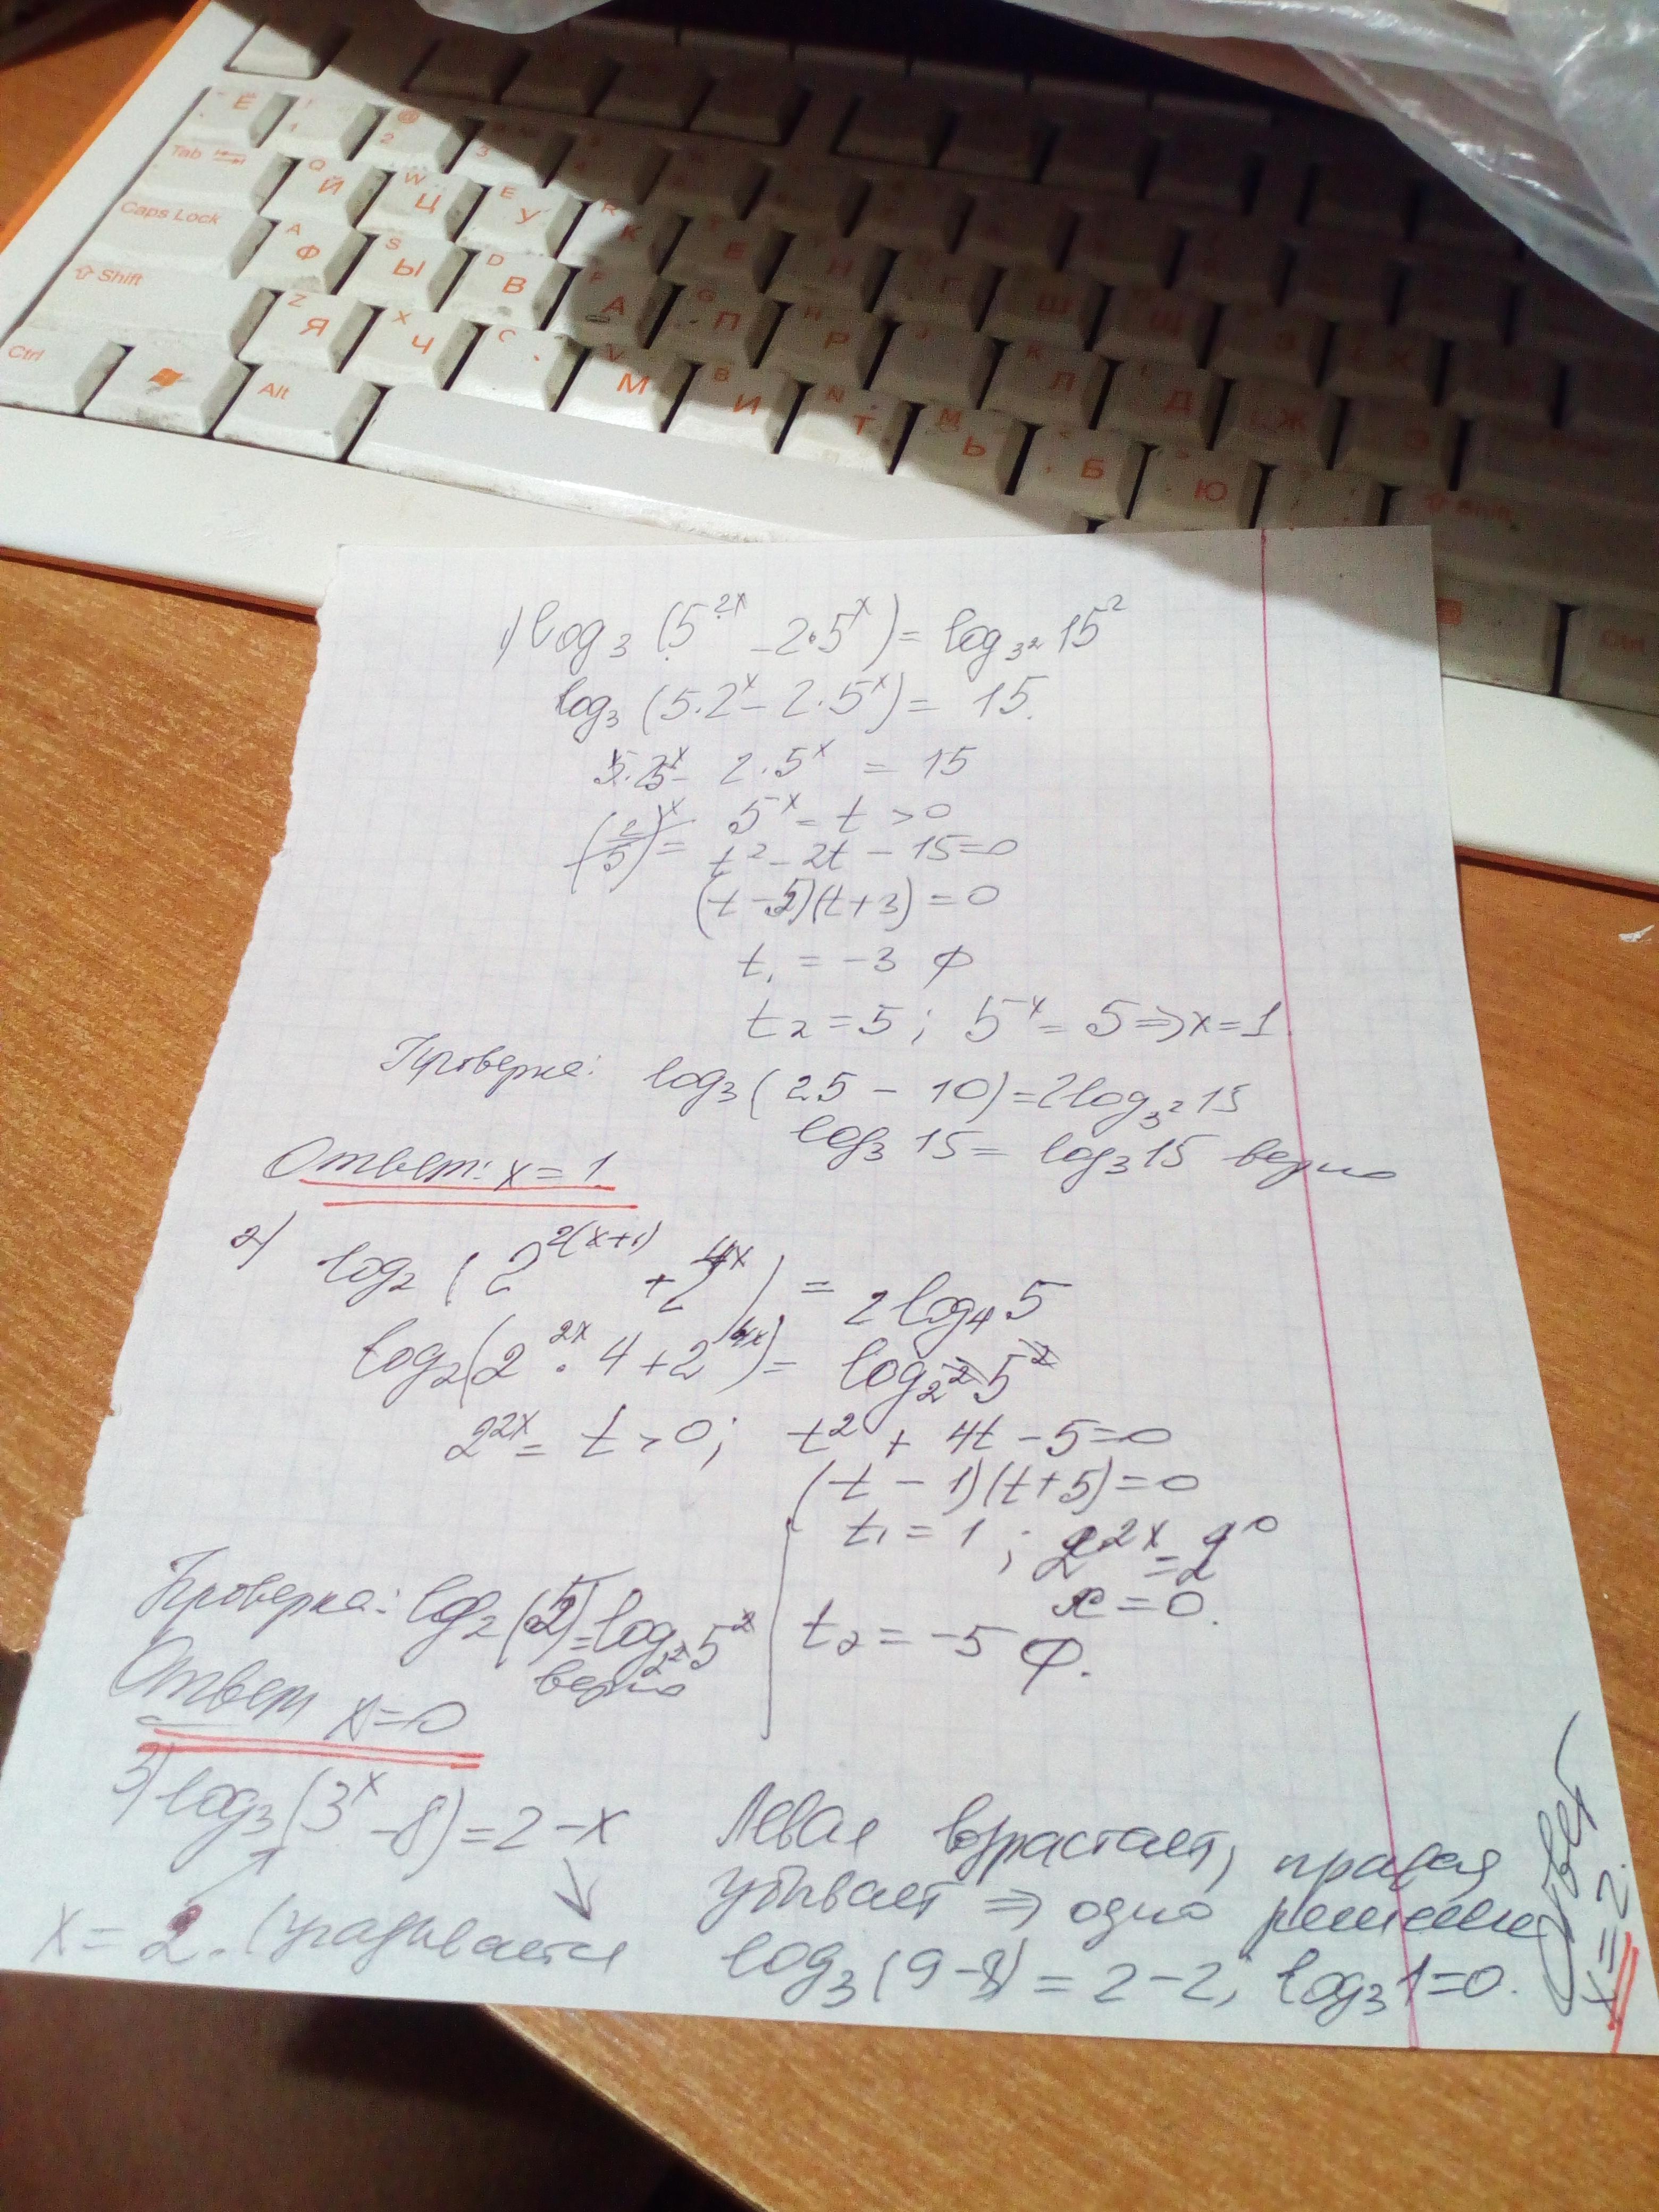 Ё 1 @ 2 3
Tab Q Й W Ц E У R К Е Н Г Ш Щ З Х
Caps Lock A Ф S Ы D В F А G П H Р J K Л Д Ж Э
Shift Z Я X Ч C V М B И N Т M Ь Б Ю
Ctrl Alt Ctrl
1) log₃ (5²ˣ - 2·5ˣ) = log₃² 15²
log₃ (5·2ˣ - 2·5ˣ) = 15.
2·5ˣ = 15
(2/5)ˣ = 5ˣ = t > 0
t² - 2t - 15 = 0
(t - 5)(t + 3) = 0
t₁ = -3 ∅
t₂ = 5; 5ˣ = 5 ⇒ x = 1
Проверка: log₃ (25 - 10) = 2log₃² 15
log₃ 15 = log₃ 15 верно
Ответ: x = 1.
2) log₂ (2²⁽ˣ⁺¹⁾ + 2⁴ˣ) = 2 log₄ 5
log₂ (2²ˣ · 4 + 2⁴ˣ) = log₂² 5²
2²ˣ = t > 0; t² + 4t - 5 = 0
(t - 1)(t + 5) = 0
t₁ = 1; 2²ˣ = 2⁰
x = 0.
t₂ = -5 ∅.
Проверка: log₂ (5) = log₂² 5²
верно
Ответ x = 0
3) log₃ (3ˣ - 8) = 2 - x
x = 2. (угадывается
Левая возрастает, правая
убывает ⇒ одно решение
log₃ (9 - 8) = 2 - 2; log₃ 1 = 0.
Ответ
x = 2.